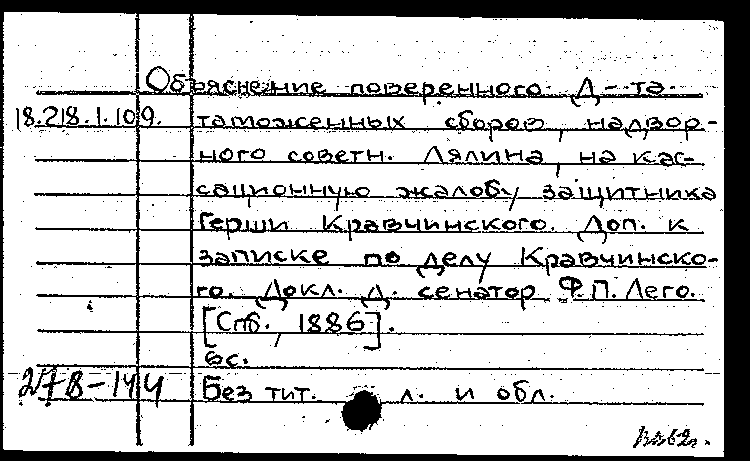 Объяснение поверенного Д-та
18.218.1.109. таможенных сборов, надвор-
ного советн. Лялина, на кас-
сационную жалобу защитника
Герши Кравчинского. Доп. к
записке по делу Кравчинско-
го. Докл. д. сенатор Ф.П. Лего.
[Спб., 1886].
6с.
Без тит. л. и обл.